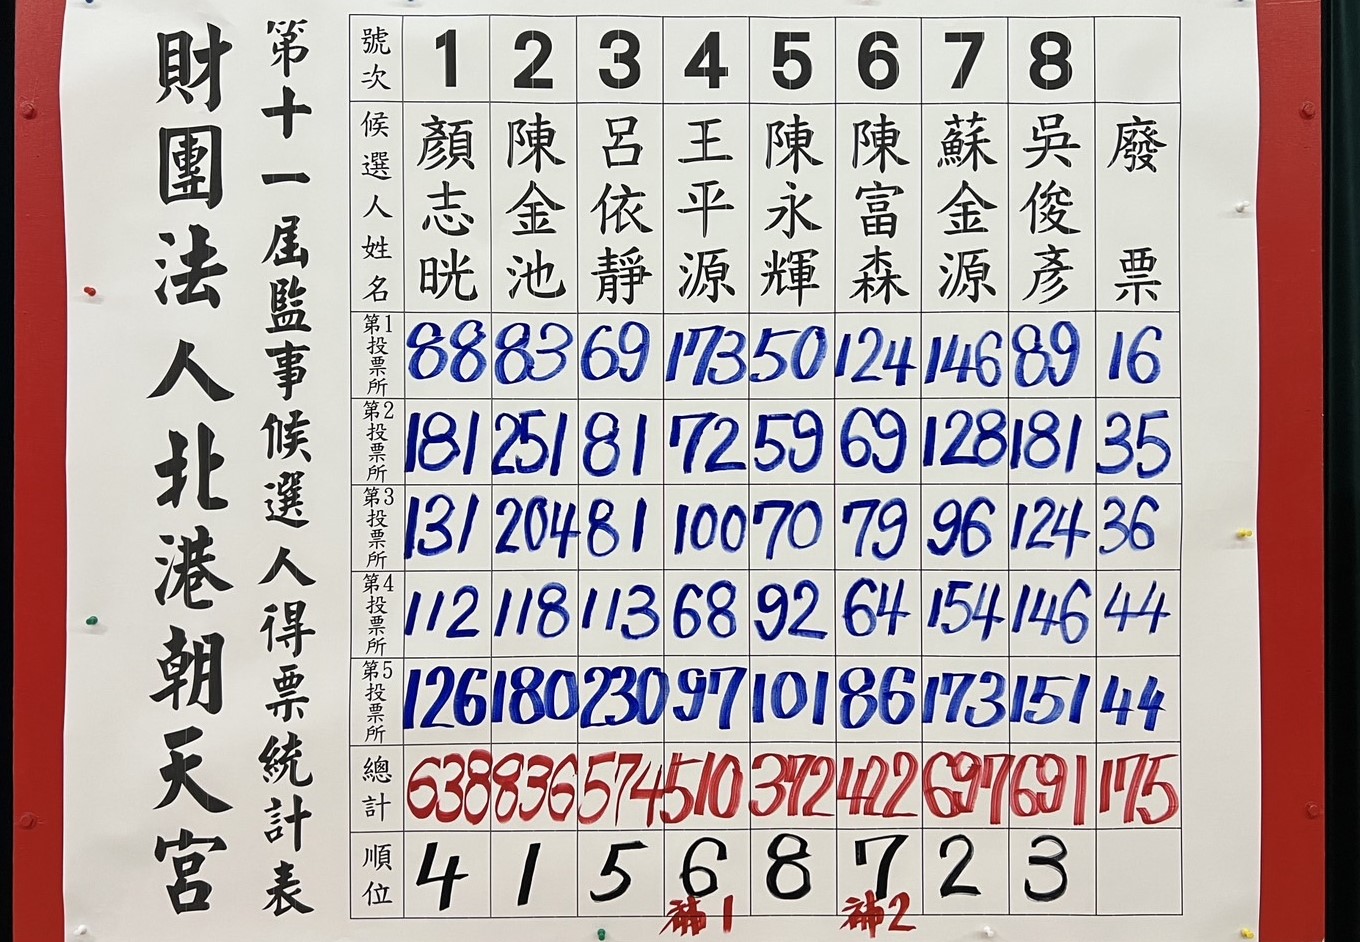 財團法人北港朝天宮
第十一屆監事候選人得票統計表
號次 1 2 3 4 5 6 7 8
候選人姓名 顏志晄 陳金池 呂依靜 王平源 陳永輝 陳富森 蘇金源 吳俊彥 廢票
第1投票所 88 83 69 173 50 124 146 89 16
第2投票所 181 251 81 72 59 69 128 181 35
第3投票所 131 204 81 100 70 79 96 124 36
第4投票所 112 118 113 68 92 64 154 146 44
第5投票所 126 180 230 97 101 86 173 151 44
總計 638 836 574 510 372 422 697 691 175
順位 4 1 5 6 8 7 2 3
補1 補2